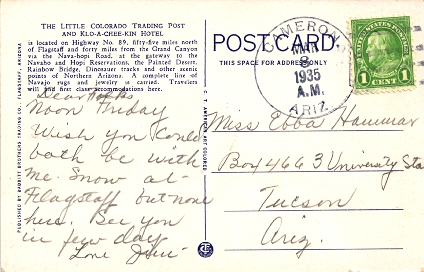 THE LITTLE COLORADO TRADING POST
AND KLO-A-CHEE-KIN HOTEL
is located on Highway No. 89, fifty-five miles north
of Flagstaff and forty miles from the Grand Canyon
via the Nava-hopi Road, at the gateway to the
Navaho and Hopi Reservations, the Painted Desert,
Rainbow Bridge, Dinosaur tracks and other scenic
points of Northern Arizona. A complete line of
Navajo rugs and jewelry is carried. Travelers
will find first class accommodations here.
Dear
Noon Friday
Wish you could
both be with
me. Snow at
Flagstaff but none
here. See you
in few day
Love
PUBLISHED BY BABBITT BROTHERS TRADING CO., FLAGSTAFF, ARIZONA
C. T. AMERICAN ART COLORED
POST CARD
THIS SPACE FOR ADDRESS ONLY
CAMERON,
MAR
8
1935
A.M.
ARIZ.
UNITED STATES POSTAGE
1 CENT 1
Miss Ebba Hammar
Box 4663 University Sta
Tucson
Ariz.